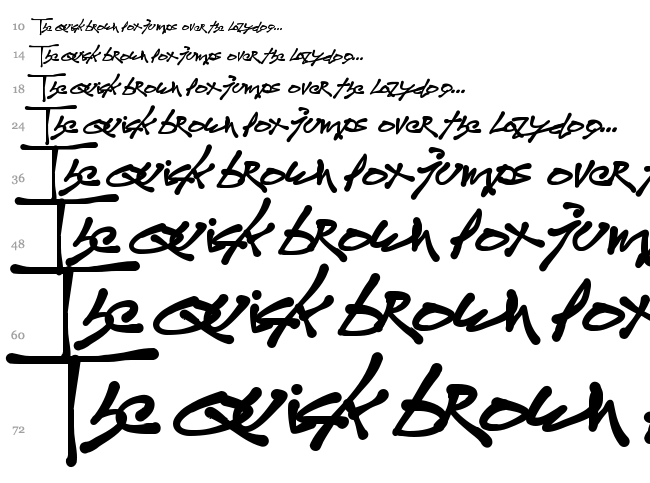 10 The quick brown fox jumps over the lazy dog...
14 The quick brown fox jumps over the lazy dog...
18 The quick brown fox jumps over the lazy dog...
24 The quick brown fox jumps over the lazy dog...
36 The quick brown fox jumps over
48 The quick brown fox jum
60 The quick brown fox
72 The quick brown